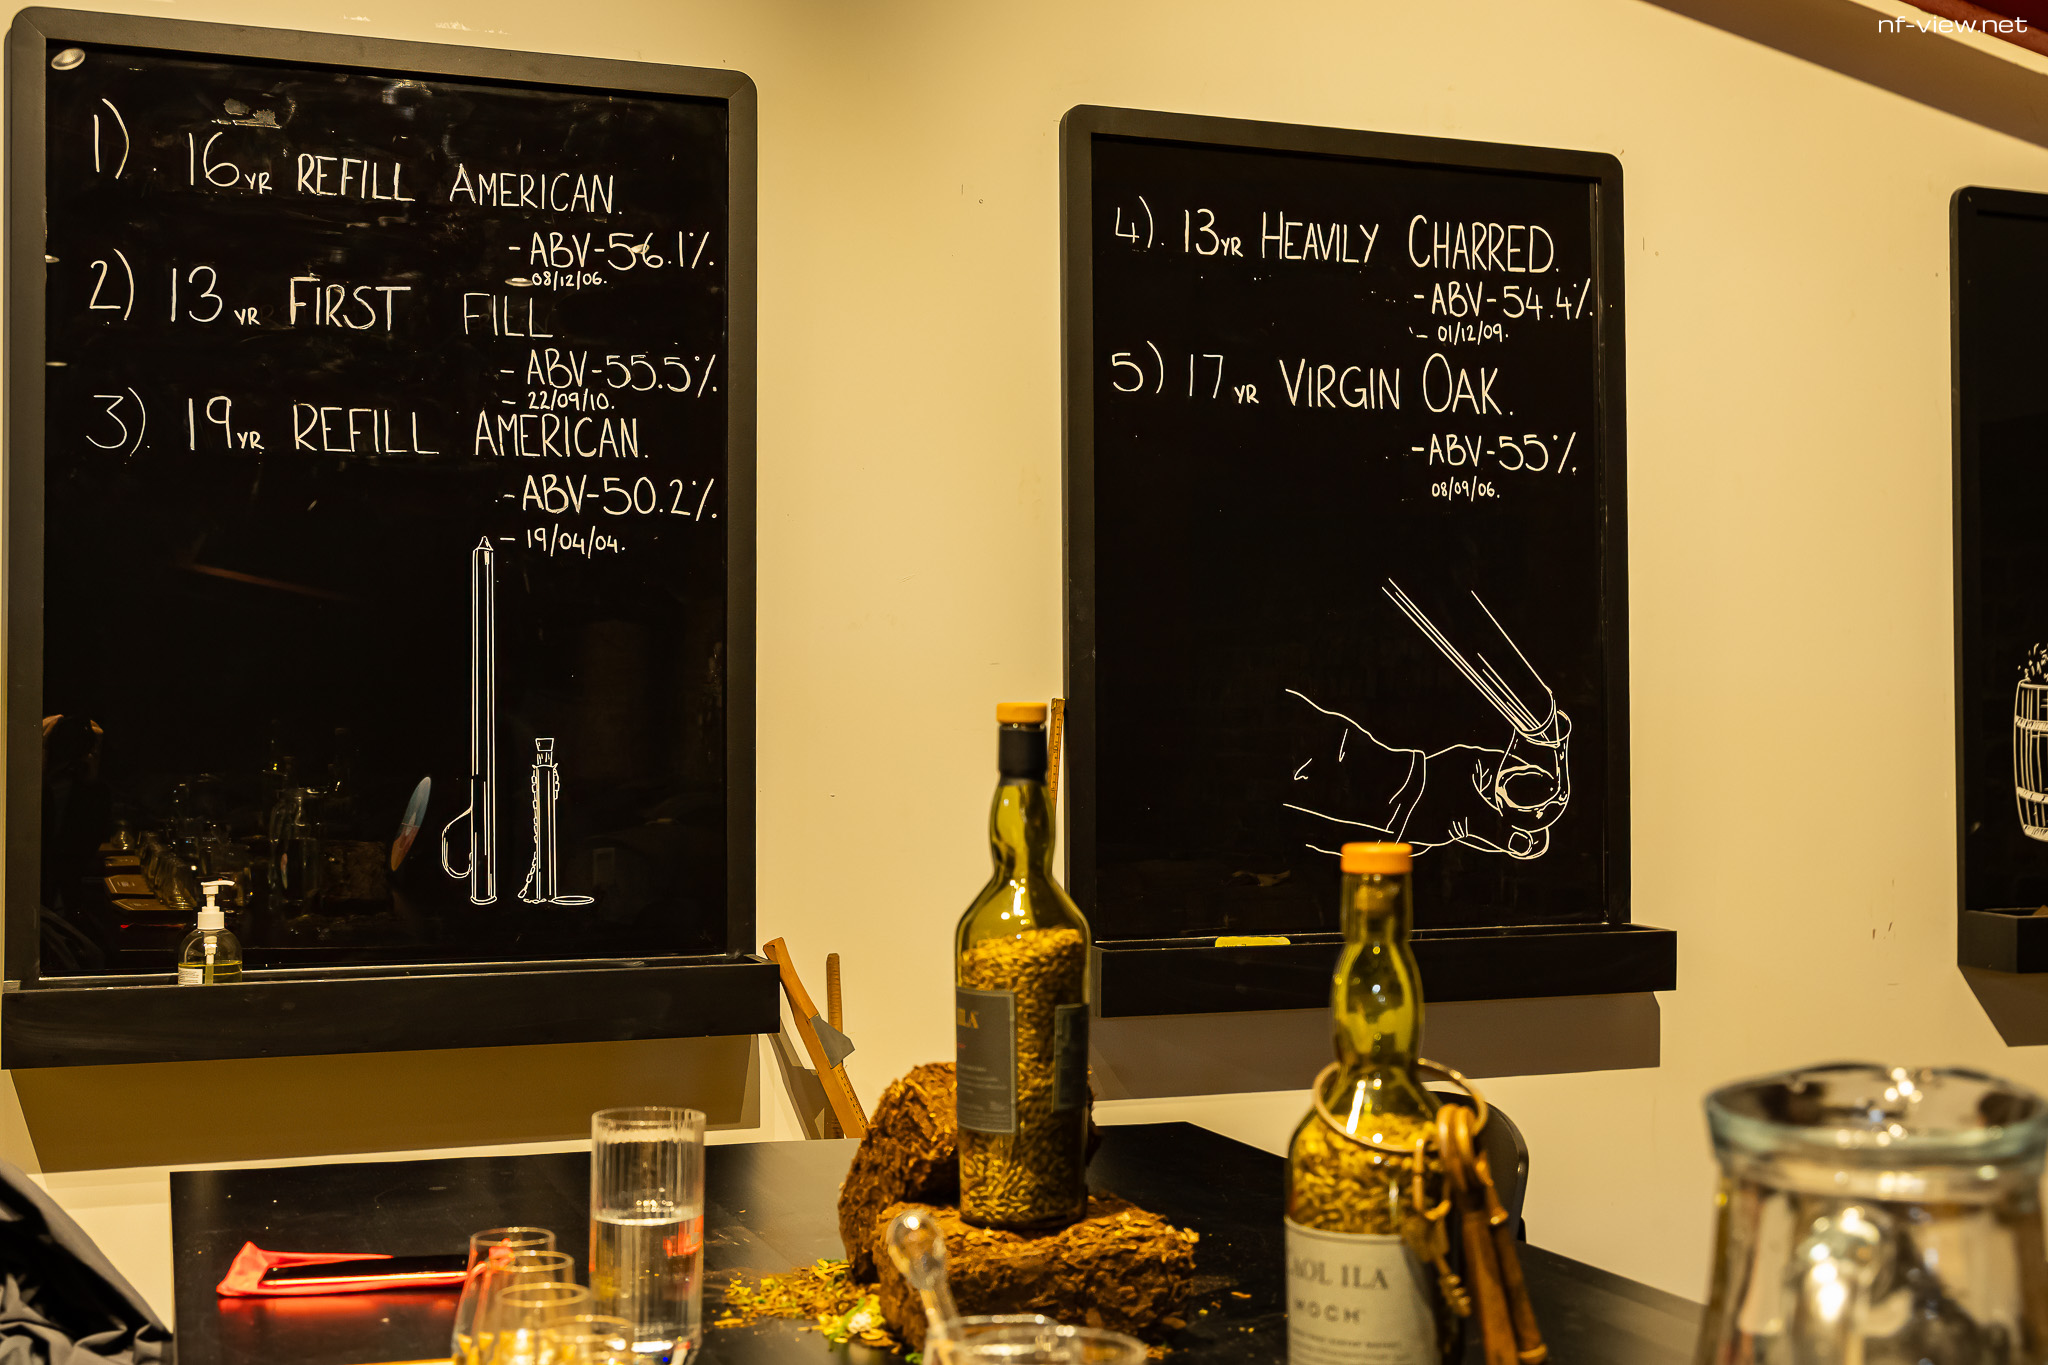 nf-view.net
1). 16YR REFILL AMERICAN.
- ABV-56.1%.
08/12/06.
2) 13 YR FIRST FILL
- ABV-55.5%.
- 22/09/10.
3). 19YR REFILL AMERICAN.
- ABV-50.2%.
- 19/04/04.
4). 13YR HEAVILY CHARRED.
- ABV-54.4%.
- 01/12/09.
5) 17 YR VIRGIN OAK.
- ABV-55%.
08/09/06.
ILA
AOL ILA
MOCH